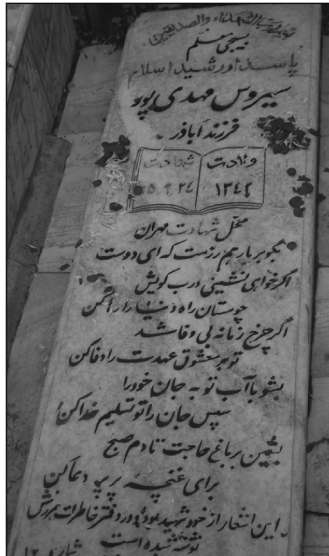 بسیجی مسلم
پاسدار رشید اسلام
سیروس مهدی پور
فرزند اباذر
ولادت شهادت
۱۳۴۲
محل شهادت مهران
که ای دوست
اگر خواهی نشینی درب کویش
چو مستان راه دنیا را رها کن
اگر چرخ زمانه بی وفا شد
تو بر معشوق عهدت را وفا کن
بشو با آب توبه جان خود را
سپس جان را تو تسلیم خدا کن
بشین بر باغ حاجت تا دم صبح
برای غنچه پرپر دعا کن
این اشعار از خود شهید بوده و در دفتر خاطرات
نوشته شده است